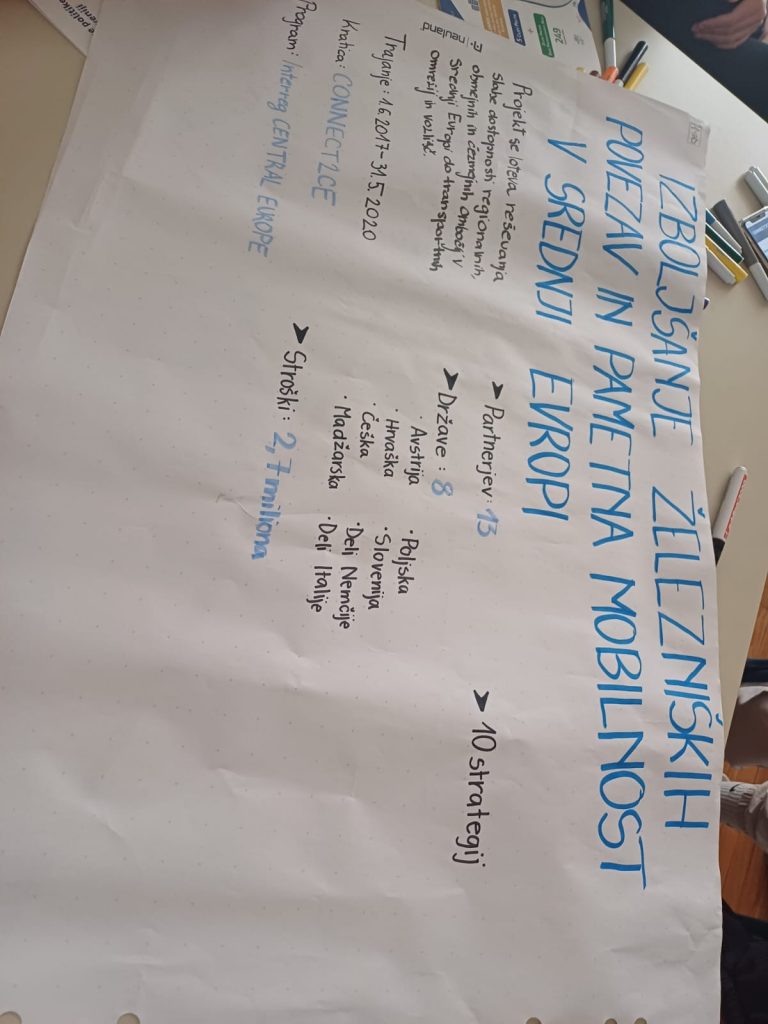 IZBOLJŠANJE ŽELEZNIŠKIH
POVEZAV IN PAMETNA MOBILNOST
V SREDNJI EVROPI
Projekt se loteva reševanja
slabe dostopnosti regionalnih,
obmejnih in čezmejnih območij v
Srednji Evropi do transportnih
omrežij in vozlišč.
neuland
Trajanje: 1.6.2017-31.5.2020
Kratica: CONNECT2CE
Program: Interreg CENTRAL EUROPE
➤ Partnerjev: 13
➤ Države: 8
· Avstrija
· Hrvaška
· Češka
· Madžarska
· Poljska
· Slovenija
· Deli Nemčije
· Deli Italije
➤ Stroški: 2,7 miliona
➤ 10 strategij